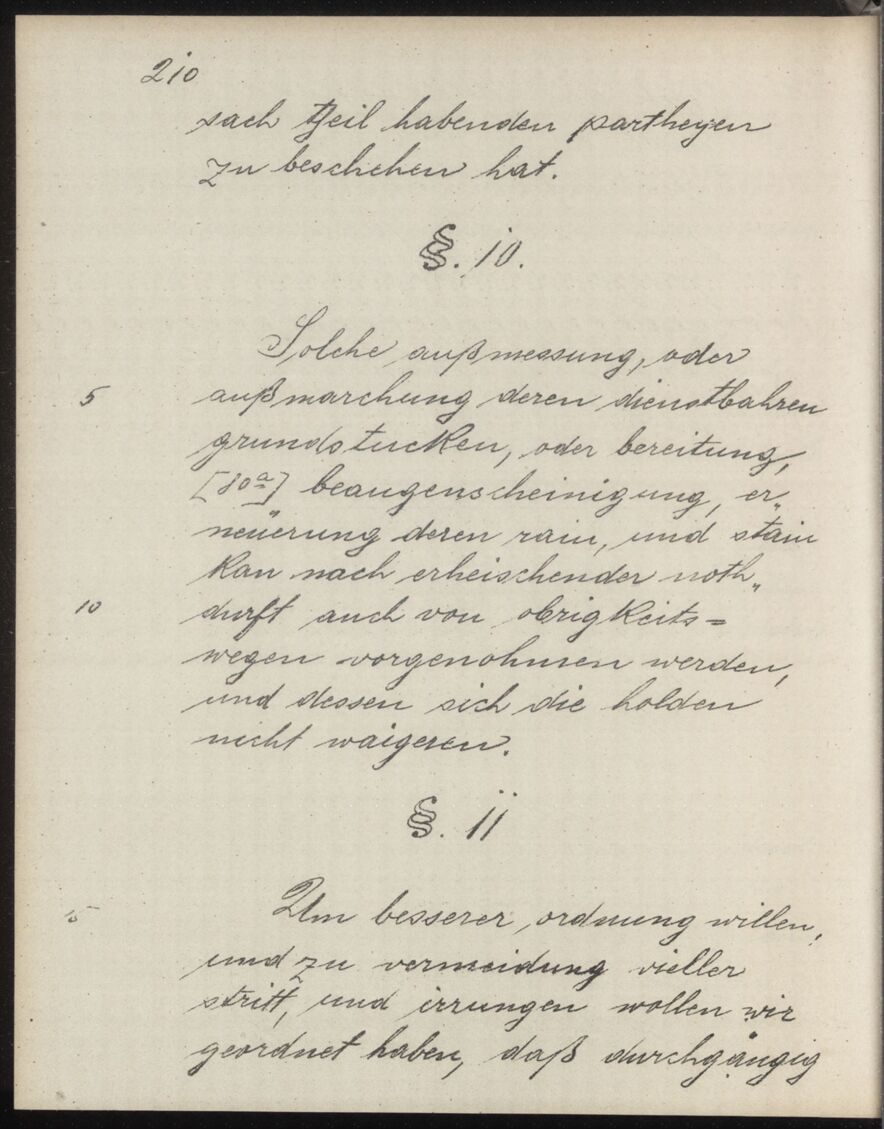 2i0
sach theil habenden partheyen
zu beschehen hat.
§. i0.
Solche außmessung, oder
5 außmarchung deren dienstbahren
grundstucken, oder bereitung,
[80a] beaugenscheinigung, er„
neüerung deren rain, und stain
kan nach erheischender noth„
10 durft auch von obrigkeits=
wegen vorgenohmen werden,
und dessen sich die holden
nicht waigeren.
§. ii
15 Um besserer ordnung willen,
und zu vermeidung vieller
stritt, und irrungen wollen wir
geordnet haben, daß durchgängig